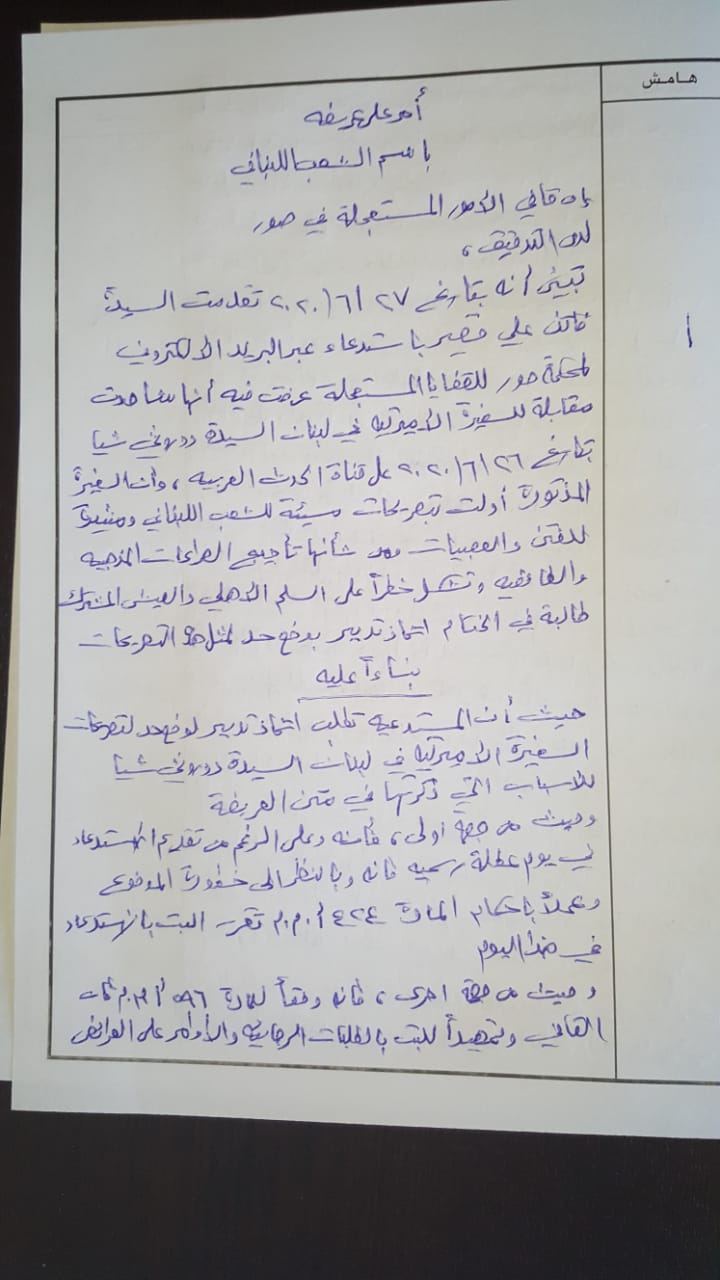 هامش
أمر على عريضه
باسم الشعب اللبناني
إن قاضي الأمور المستعجلة في صور
لدى التدقيق،
تبيّن أنه بتاريخ ٢٧ /٦/ ٢٠٢٠ تقدمت السيدة
فاتن علي قصير باستدعاء عبر البريد الالكتروني
لمحكمة صور للقضايا المستعجلة عرضت فيه أنها شاهدت
مقابلة للسفيرة الأميركية في لبنان السيدة دوروثي شيا
بتاريخ ٢٦ /٦/ ٢٠٢٠ على قناة الحدث العربيه، وأن السفيرة
المذكورة أدلت بتصريحات مسيئة للشعب اللبناني ومثيرة
للفتن والعصبيات ومن شأنها تأجيج الصراعات المذهبيه
والطائفيه وتشكل خطراً على السلم الأهلي والعيش المشترك
طالبة في الختام اتخاذ تدبير بوضع حد لمثل هذه التصريحات
بناءاً عليه
حيث أن المستدعيه تطلب اتخاذ تدبير لوضع حد لتصريحات
السفيرة الأميركية في لبنان السيدة دوروثي شيا
للأسباب التي ذكرتها في متن العريضة
وحيث من جهة أولى، فأنه وعلى الرغم من تقديم الإستدعاء
في يوم عطلة رسميه فانه وبالنظر الى خطورة الموضوع
وعملاً باحكام المادة ٤٢٤ أ.م.م تقرر البت بالإستدعاء
في هذا اليوم
وحيث من جهة اخرى، فانه وفقاً للمادة ٥٩٦ أ.م.م فان
القاضي وتمهيداً للبت بالطلبات الرجائيه والأوامر على العرائض